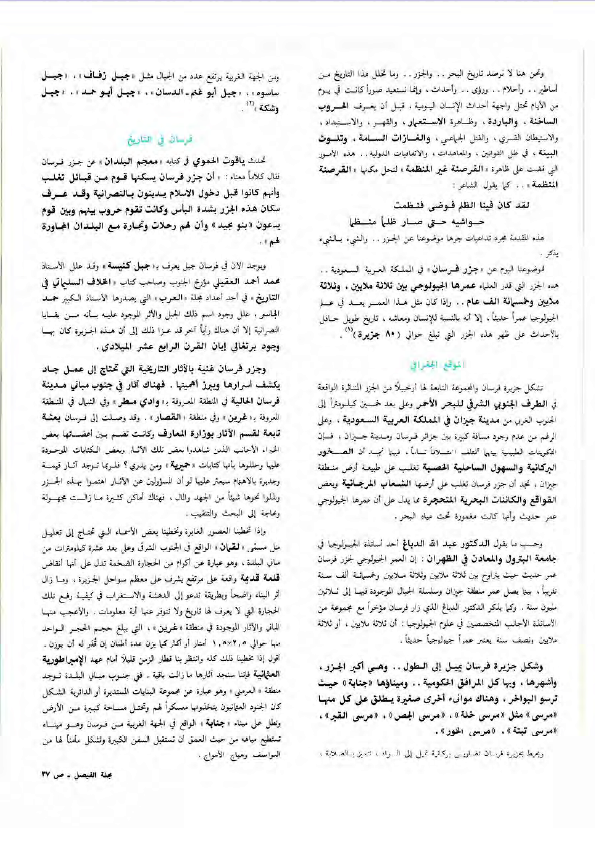 ونحن هنا لا نرصد تاريخ البحر .. والجزر .. وما تخلل هذا التاريخ من
أساطير .. وأحلام .. ورؤى .. وأحداث ، وإنما نستعيد صوراً كانت في يوم
من الأيام تحتل واجهة أحداث الإنسان اليومية . قبل أن يعرف الحروب
الساخنة ، والباردة ، وظاهرة الاستعمار ، والقهر ، والاستبداد ،
والاستيطان القسري ، والقتل الجماعي ، والغازات السامة ، وتلوث
البيئة ، في ظل القوانين ، والمعاهدات ، والاتفاقيات الدولية .. هذه الأمور
التي قضت على ظاهرة «القرصنة غير المنظمة» لتحل مكانها «القرصنة
المنظمة» .. كما يقول الشاعر :
لقد كان فينا الظلم فوضى فنظمت
حواشيه حتى صار ظلماً منظما
هذه المقدمة مجرد تداعيات جرها موضوعنا عن الجزر .. والشيء بالشيء
يذكر .
فموضوعنا اليوم عن «جزر فرسان» في المملكة العربية السعودية ..
هذه الجزر التي قدر العلماء عمرها الجيولوجي بين ثلاثة ملايين ، وثلاثة
ملايين وخمسمائة ألف عام .. وإذا كان مثل هذا العمر يعد في علم
الجيولوجيا عمراً حديثاً ، إلا أنه بالنسبة للإنسان ومعاشه ، تاريخ طويل حافل
بالأحداث على ظهر هذه الجزر التي تبلغ حوالي (٨٥ جزيرة)(١) .
الموقع الجغرافي
تشكل جزيرة فرسان والمجموعة التابعة لها أرخبيلاً من الجزر المتناثرة الواقعة
في الطرف الجنوبي الشرقي للبحر الأحمر وعلى بعد خمسين كيلومتراً إلى
الجنوب الغربي من مدينة جيزان في المملكة العربية السعودية ، وعلى
الرغم من عدم وجود مسافة كبيرة بين جزائر فرسان ومدينة جيزان ، فإن
التكوينات الطبيعية بينهما تختلف اختلافاً تاماً ، فبينما نجد أن الصخور
البركانية والسهول الساحلية الخصبة تغلب على طبيعة أرض منطقة
جيزان ، نجد أن جزر فرسان تغلب على أرضها الشعاب المرجانية وبعض
القواقع والكائنات البحرية المتحجرة مما يدل على أن عمرها الجيولوجي
عمر حديث وأنها كانت مغمورة تحت مياه البحر .
وحسب ما يقول الدكتور عبد الله الدباغ أحد أساتذة الجيولوجيا في
جامعة البترول والمعادن في الظهران : إن العمر الجيولوجي لجزر فرسان
عمر حديث حيث يتراوح بين ثلاثة ملايين وثلاثة ملايين وخمسمائة ألف سنة
تقريباً ، بينما يصل عمر منطقة جيزان وسلسلة الجبال الموجودة فيها إلى ثلاثين
مليون سنة . وكما يذكر الدكتور الدباغ الذي زار فرسان مؤخراً مع مجموعة من
الأساتذة الأجانب المتخصصين في علوم الجيولوجيا : أن ثلاثة ملايين ، أو ثلاثة
ملايين ونصف سنة يعتبر عمراً جيولوجياً حديثاً .
وشكل جزيرة فرسان يميل إلى الطول .. وهي أكبر الجزر ،
وأشهرها ، وبها كل المرافق الحكومية .. وميناؤها «جنابة» حيث
ترسو البواخر ، وهناك موانىء أخرى صغيرة يطلق على كل منها
«مرسى» مثل «مرسى خلة» ، «مرسى الجص» ، «مرسى القبر» ،
«مرسى تبتة» ، «مرسى الخور» .
ويحيط بجزيرة فرسان
ومن الجهة الغربية يرتفع عدد من الجبال مثل «جبل زفاف» ، «جبل
ساسوه» ، «جبل أبو غنم ـ الدسان» ، «جبل أبو حمد» ، «جبل
وشكة»(٢) .
فرسان في التاريخ
تحدث ياقوت الحموي في كتابه «معجم البلدان» عن جزر فرسان
فقال كلاماً معناه : «أن جزر فرسان يسكنها قوم من قبائل تغلب
وأنهم كانوا قبل دخول الاسلام يدينون بالنصرانية وقد عرف
سكان هذه الجزر بشدة البأس وكانت تقوم حروب بينهم وبين قوم
يدعون «بنو مجيد» وأن لهم رحلات وتجارة مع البلدان المجاورة
لهم» .
ويوجد الآن في فرسان جبل يعرف بـ«جبل كنيسة» وقد علل الأستاذ
محمد أحمد العقيلي مؤرخ الجنوب وصاحب كتاب «المخلاف السليماني في
التاريخ» في أحد أعداد مجلة «العرب» التي يصدرها الأستاذ الكبير حمد
الجاسر ، علل وجود اسم ذلك الجبل والآثر الموجود عليه بأنه من بقايا
النصرانية إلا أن هناك رأياً آخر قد عزا ذلك إلى أن هذه الجزيرة كان بها
وجود برتغالي إبان القرن الرابع عشر الميلادي .
وجزر فرسان غنية بالآثار التاريخية التي تحتاج إلى عمل جاد
يكشف أسرارها ويبرز أهميتها . فهناك آثار في جنوب مباني مدينة
فرسان الحالية في المنطقة المعروفة بـ«وادي مطر» وفي الشمال في المنطقة
المعروفة بـ«غرين» وفي منطقة «القصار» . وقد وصلت إلى فرسان بعثة
تابعة لقسم الآثار بوزارة المعارف وكانت تضم بين أعضائها بعض
الخبراء الأجانب الذين شاهدوا بعض تلك الآثار . وبعض الكتابات الموجودة
عليها وحللوها بأنها كتابات «حميرية» ومن يدري ؟ فلربما توجد آثار قيمة
وجديرة بالاهتمام سيعثر عليها لو أن المسؤولين عن الآثار اهتموا بهذه الجزر
وبذلوا نحوها شيئاً من الجهد والمال ، فهناك أماكن كثيرة ما زالت مجهولة
وبحاجة إلى البحث والتنقيب .
وإذا تخطينا العصور الغابرة وتخطينا بعض الأسماء التي تحتاج إلى تعليل
مثل مسمى «لقمان» الواقع في الجنوب الشرقي وعلى بعد عشرة كيلومترات من
مباني البلدة ، وهو عبارة عن أكوام من الحجارة الضخمة تدل على أنها أنقاض
قلعة قديمة واقعة على مرتفع يشرف على معظم سواحل الجزيرة ، وما زال
أثر البناء واضحاً وبطريقة تدعو إلى الدهشة والاستغراب في كيفية رفع تلك
الحجارة التي لا يعرف لها تاريخ ولا تتوفر عنها أية معلومات . والأعجب منها
المباني والآثار الموجودة في منطقة «غرين» ، التي يبلغ حجم الحجر الواحد
منها حوالي ٢,٥×١,٥ أمتار أو أكثر كما يزن عدة أطنان إن قُدِّر له أن يوزن .
أقول إذا تخطينا ذلك كله وانتظر بنا قطار الزمن قليلاً أمام عهد الإمبراطورية
العثمانية فإننا سنجد آثارها ما زالت باقية . ففي جنوب مباني البلدة توجد
منطقة «العرضي» وهو عبارة عن مجموعة البنايات المستديرة أو الدائرية الشكل
كان الجنود العثمانيون يتخذونها معسكراً لهم وتحتل مساحة كبيرة من الأرض
وتطل على ميناء «جنابة» الواقع في الجهة الغربية من فرسان وهو ميناء
تستطيع مياهه من حيث العمق أن تستقبل السفن الكبيرة وتشكل مأمناً لها من
العواصف وهياج الأمواج .
مجلة الفيصل ـ ص ٣٧